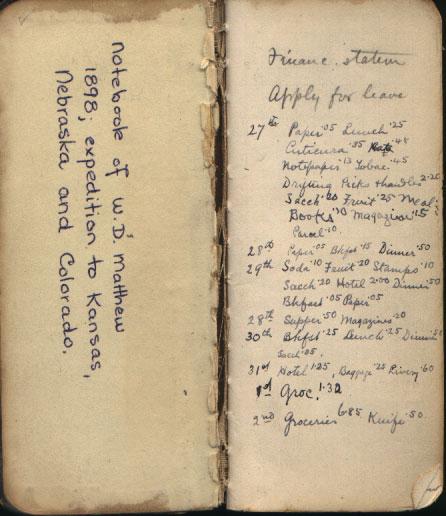 notebook of W.D. Matthew
1898; expedition to Kansas,
Nebraska and Colorado.
Finance. statem
Apply for leave
27th Paper .05 Lunch .25
Cuticura .85
Notepaper .13 Tobac. .45
Drying Picks & handles 2.20
Sacch .20 Fruit .25 Meal
Books .10 Magazine .15
Parcel .10
28th Paper .05 Bkfst .15 Dinner .50
29th Soda .10 Fruit .20 Stamps .10
Sacch .20 Hotel 2.00 Dinner .50
Bkfast .05 Paper .05
28th Supper .50 Magazine .20
30th Bkfst .25 Lunch .25 Dinner
Sacch .05.
31st Hotel 1.25, Baggage .25 Livery .60
1st Groc. 1.32
2nd Groceries 6.85 Knife .50